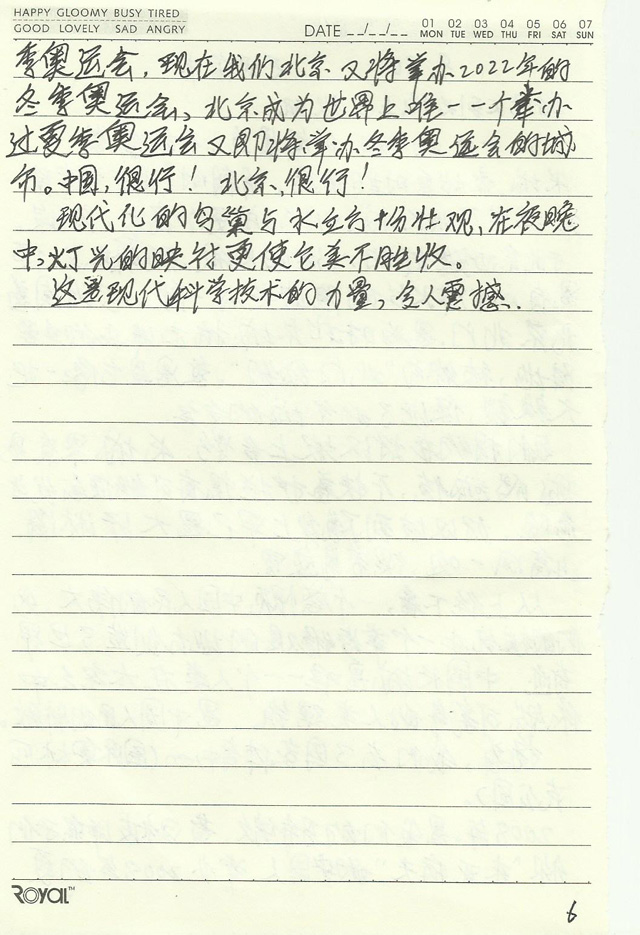 HAPPY GLOOMY BUSY TIRED
GOOD LOVELY SAD ANGRY
DATE __/__/__
01 02 03 04 05 06 07
MON TUE WED THU FRI SAT SUN
季奥运会，现在我们北京又将举办2022年的
冬季奥运会，北京成为世界上唯一一个举办
过夏季奥运会又即将举办冬季奥运会的城
市。中国，很行！北京，很行！
现代化的鸟巢与水立方十分壮观，在夜晚
中，灯光的映衬更使它美不胜收。
这是现代科学技术的力量，令人震撼..
ROYAL™
6